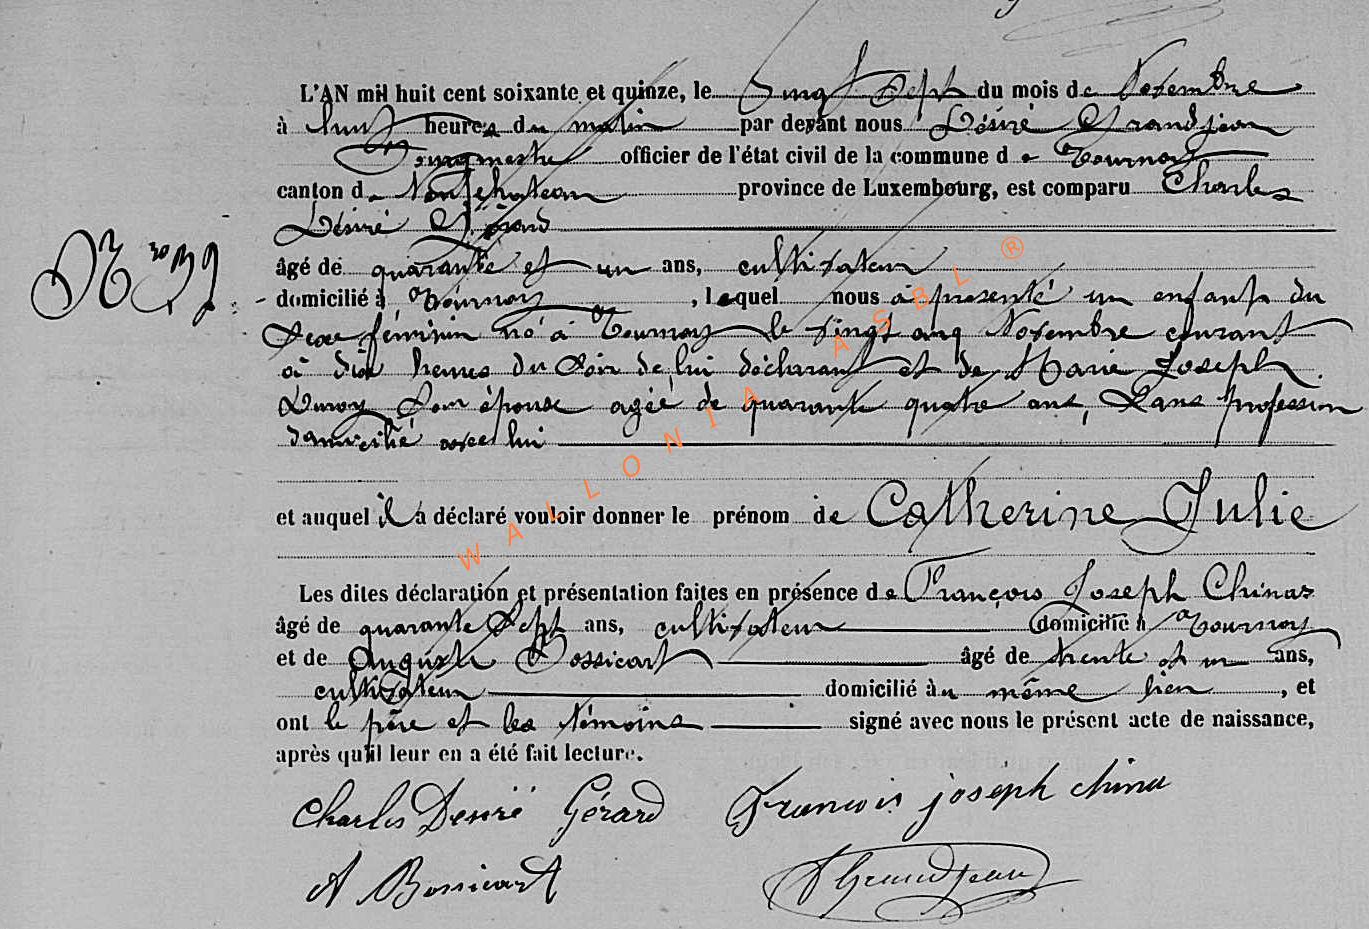 L'AN mil huit cent soixante et quinze, le vingt Sept du mois de Novembre
à huit heures du matin par devant nous Désiré Grandjean
Bourgmestre officier de l'état civil de la commune de Tournay
canton de Neufchateau province de Luxembourg, est comparu Charles
Désiré Gérard
âgé de quarante et un ans, cultivateur
N
domicilié à Tournay, lequel nous a présenté un enfant du
Sexe féminin né à Tournay le vingt cinq Novembre courant
à dix heures du Soir de lui déclarant et de Marie Joseph
Son épouse agée de quarante quatre ans, Sans profession
domicilié avec lui
et auquel il a déclaré vouloir donner le prénom de Catherine Julie
Les dites déclaration et présentation faites en présence de François Joseph Chinas
âgé de quarante Sept ans, cultivateur domicilié à Tournay
et de Auguste Bossicart âgé de trente et un ans,
cultivateur domicilié au même lieu, et
ont le père et les témoins signé avec nous le présent acte de naissance,
après qu'il leur en a été fait lecture.
Charles Desiré Gérard François joseph china
A Bossicart D Grandjean
WALLONIA ASBL ®